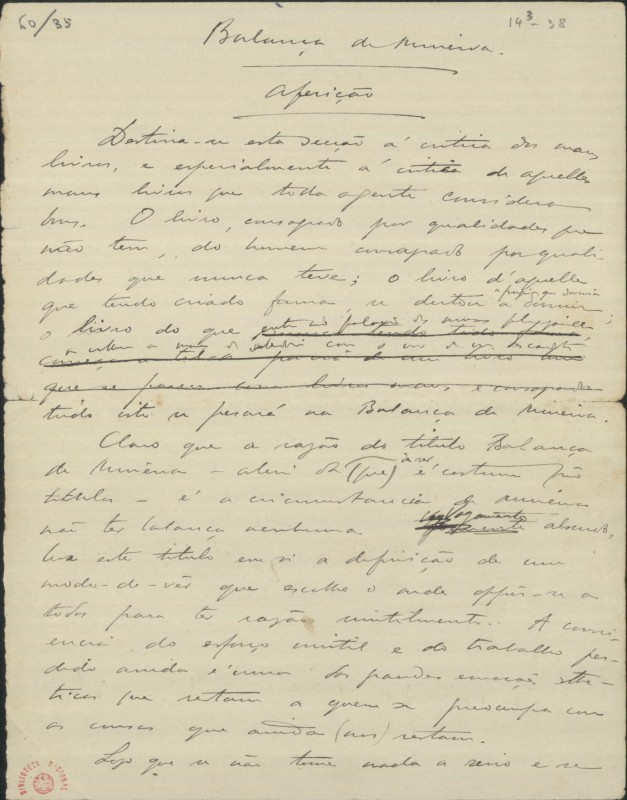 60/35
14³-38
Balança de Minerva.
Aferição
Destina-se esta secção á critica dos maus
livros, e especialmente á critica de aquelles
maus livros que toda a gente considera
bons. O livro, consagrado por qualidades que
não tem, do homem consagrado por quali-
dades que nunca teve; o livro d'aquelle
que tendo criado fama, se deitou a dormir
o livro do que entra no
tudo isto se pesará na Balança de Minerva.
Claro que a razão do titulo Balança
de Minerva — alem da (que) é costume
titulos — é a circumstancia de Minerva
não ter balança nenhuma. absurdo,
luz este titulo em si a definição de um
modo-de-vêr que escolhe o onde oppôr-se a
todos para ter razão inutilmente. A consci-
encia do esforço inutil e do trabalho per-
dido ainda é uma das grandes emoções esthe-
ticas que restam a quem se preocupa com
as cousas que ainda (nos) restam.
Logo que se não tome nada a serio e se
BIBLIOTECA NACIONAL